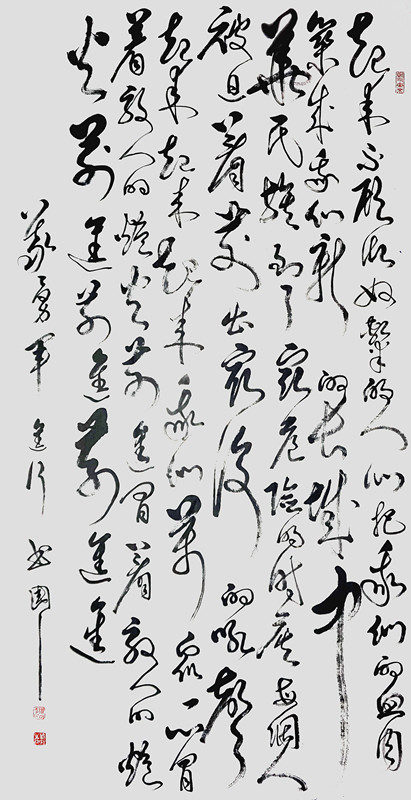 起来不愿做奴隶的人们把我们的血肉
築成我们新的长城中
華民族到了最危险的时候每個人
被迫着发出最後的吼聲
起来起来起来我们萬众一心冒
着敌人的炮火前進冒着敌人的炮
火前進前進前進進
义勇军進行曲